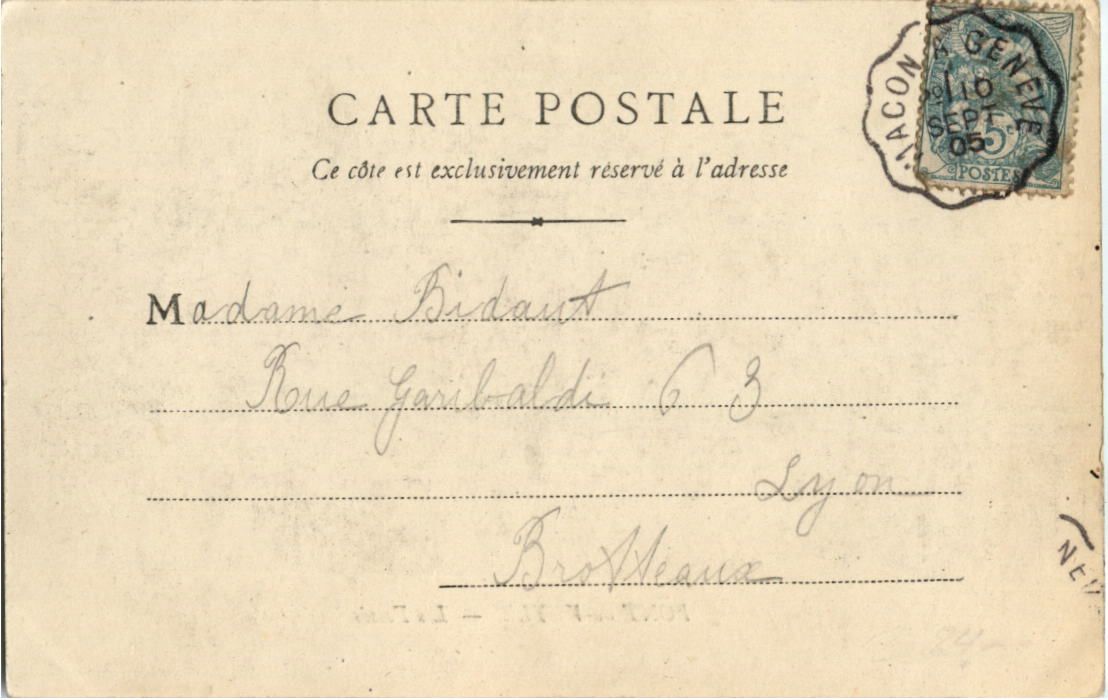 CARTE POSTALE
Ce côte est exclusivement réservé à l'adresse
MACON A GENEVE
10
SEPT
05
5
POSTES
Madame Bidaut
Rue Garibaldi 63
Lyon
Brotteaux
24